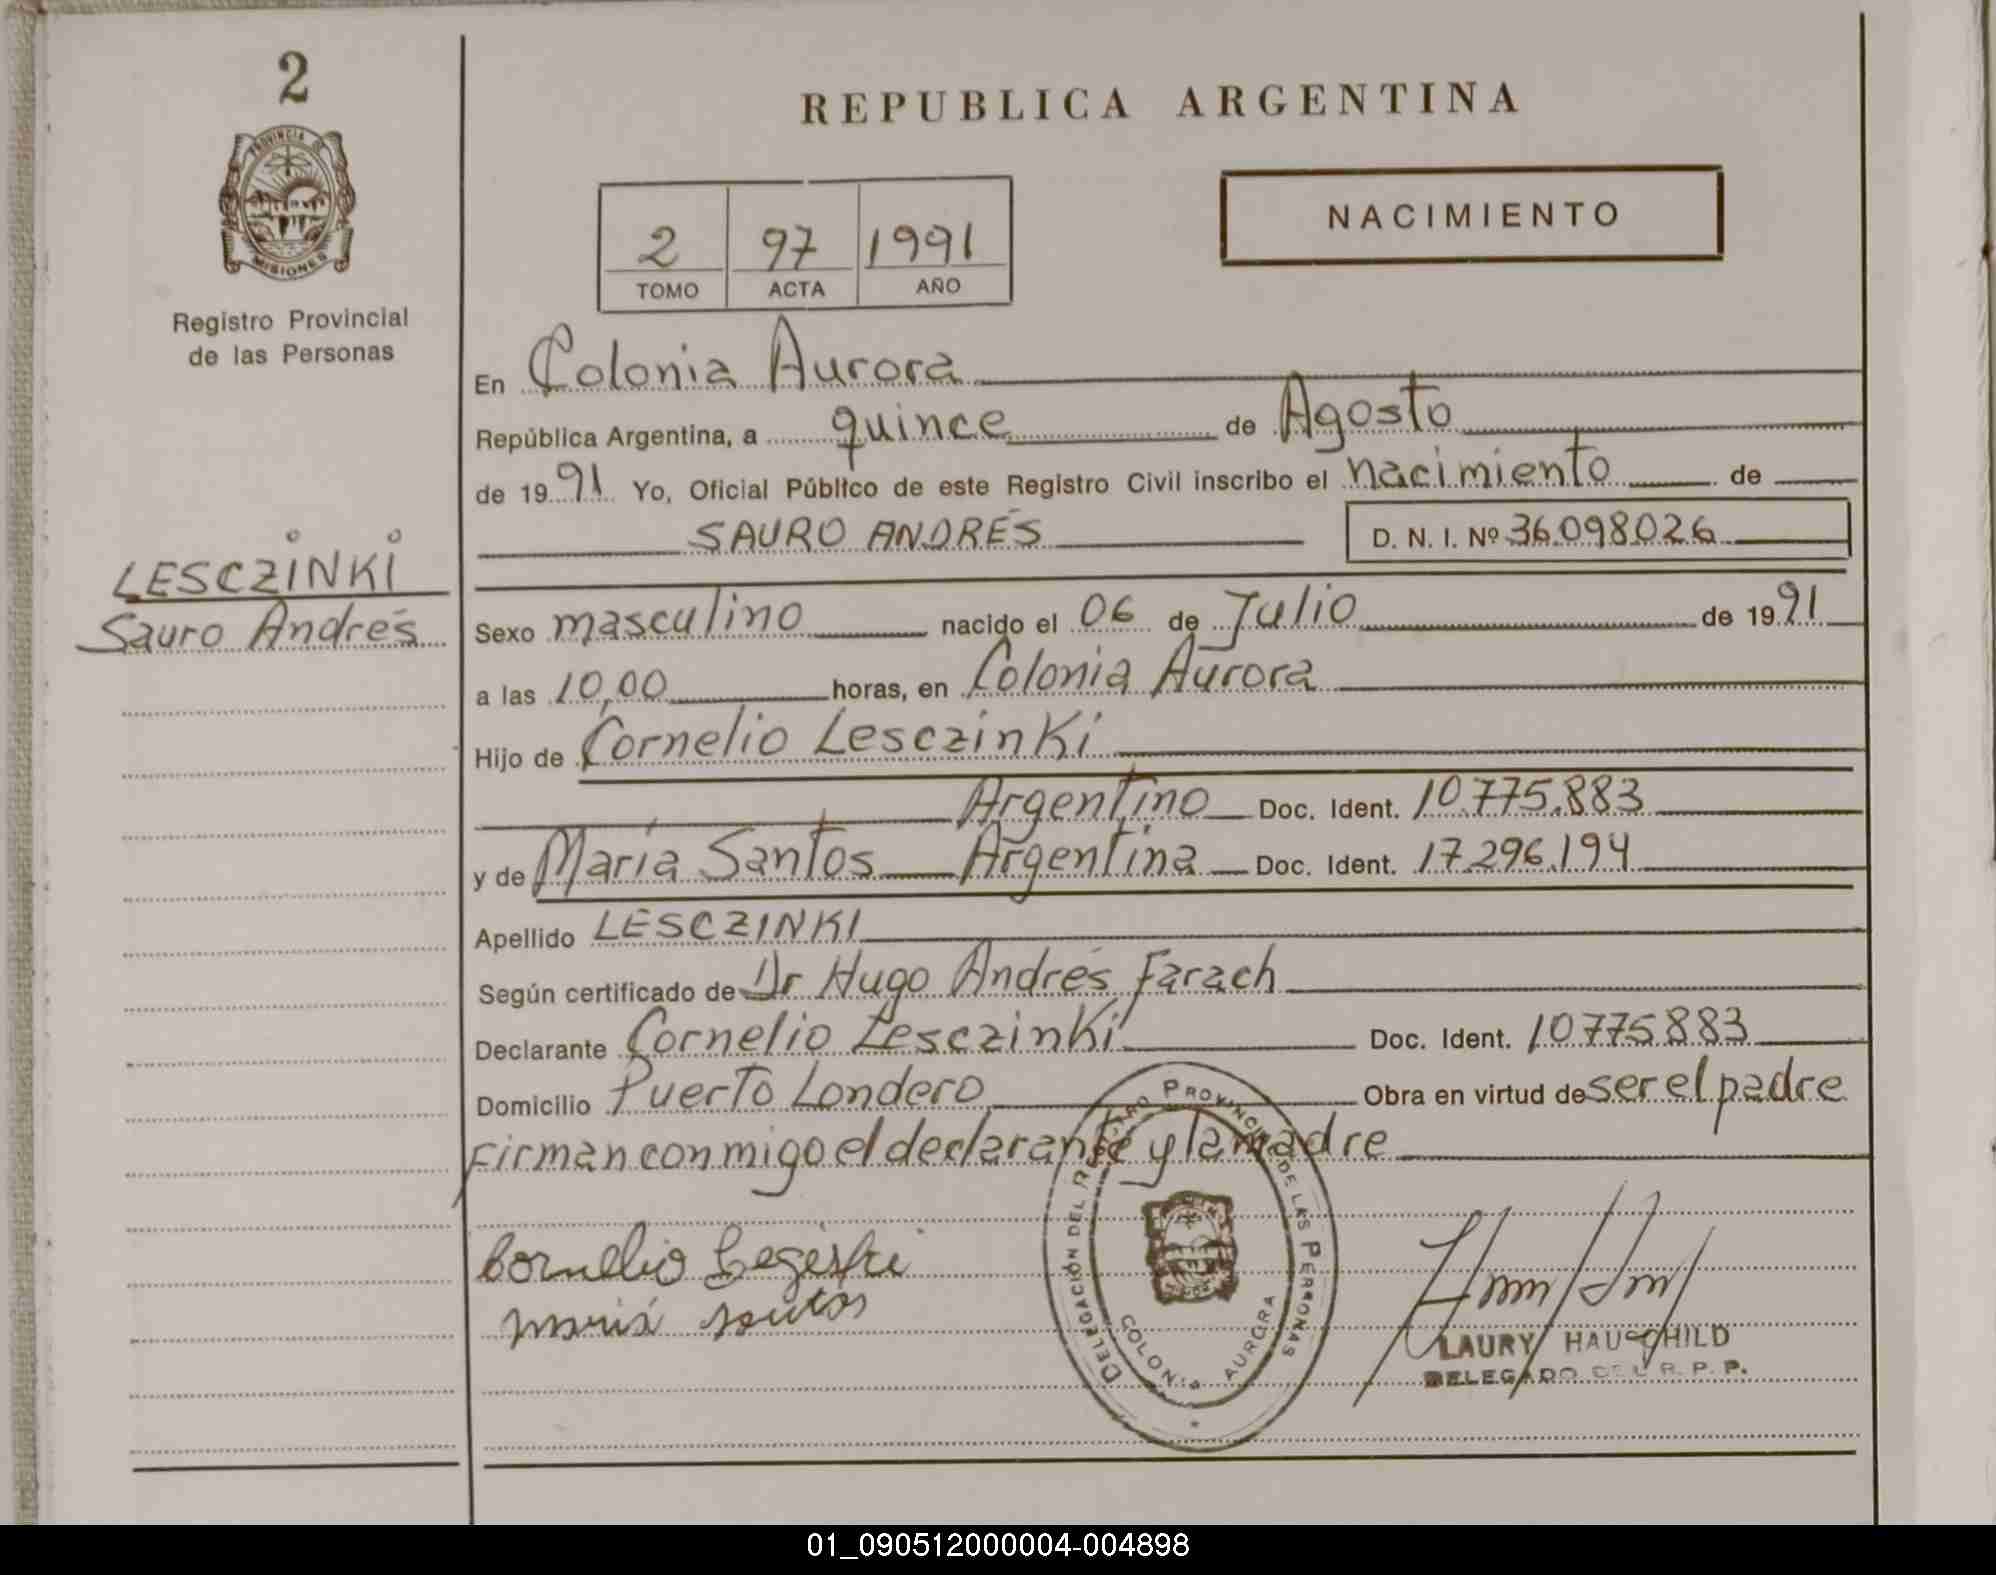 2
PROVINCIA DE
MISIONES
Registro Provincial
de las Personas
LESCZINKI
Sauro Andrés
REPUBLICA ARGENTINA
2 97 1991
TOMO ACTA AÑO
NACIMIENTO
En Colonia Aurora
República Argentina, a quince de Agosto
de 1991 Yo, Oficial Público de este Registro Civil inscribo el nacimiento de
SAURO ANDRÉS D. N. I. Nº 36.098.026
Sexo masculino nacido el 06 de Julio de 1991
a las 10,00 horas, en Colonia Aurora
Hijo de Cornelio Lesczinki
Argentino Doc. Ident. 10.775.883
y de María Santos Argentina Doc. Ident. 17.296.194
Apellido LESCZINKI
Según certificado de Dr Hugo Andrés Farach
Declarante Cornelio Lesczinki Doc. Ident. 10.775.883
Domicilio Puerto Londero Obra en virtud de ser el padre
Firman conmigo el declarante y la madre
DELEGACIÓN DEL REGISTRO PROVINCIAL DE LAS PERSONAS
COLONIA AURORA
Cornelio
Maria Santos
LAURY HAUSCHILD
DELEGADO DEL R. P. P.
01_090512000004-004898